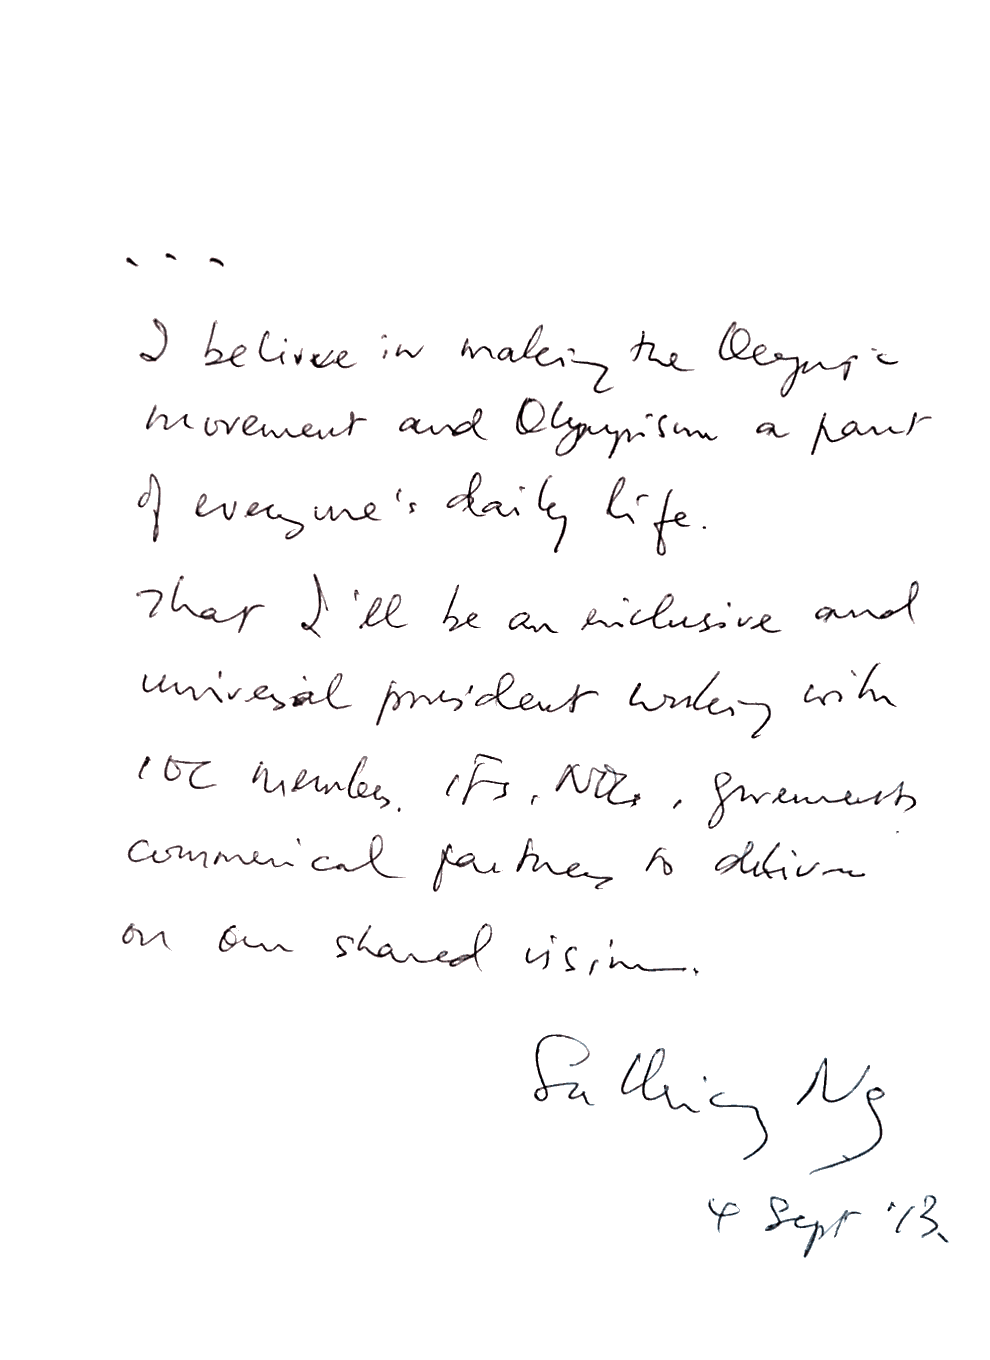 ...
I believe in making the Olympic
movement and Olympism a part
of everyone's daily life.
That I'll be an inclusive and
universal president working with
IOC members, IFs, NOCs, governments
commerical partners to deliver
on our shared vision.
Ser Miang Ng
4 Sept '13.